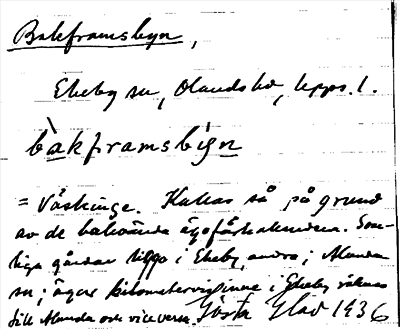 Bakframsbyn,
Ekeby sn, Olands hd, Upps. l.
bakframsbyn
= Väskinge. Kallas så på grund
av de bakvända ägoförhållandena. Som-
liga gårdar ligga i Ekeby, andra i Alunda
sn; ägare i Ekeby räknas
till Alunda och vice versa. Gösta Glad 1936